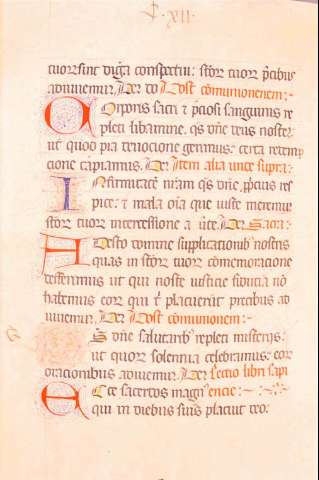 ·XII·
tuorsint digna conspectui: sctor tuor pcibus
adiuuemur. Per do Post cōmunionem:
Corporis sacri et pciosi sanguinis re
pleti libamine. qs dne deus noster.
ut quod pia deuocione gerimus: certa redemp
cione capiamus. Per Item alia unce supra:
Infirmitatē nram qs dne, ppicius res
pice: et mala oīa que iuste meremur
sctor tuor intercessione auerte. Per Sacra:
Adesto domine supplicationib nostris
quas in sctor tuor comemoracione
defferimus ut qui nostre iusticie fiducia nō
habemus eor qui t placuerūt precibus ad
iuuemur. Per Post comunionem:
S dne salutarib repleti misterijs:
ut quor solennia celebramus: eor
oracionibus adiuuemur. Per lectio libri sapi
Ecce sacerdos magn encie:
qui in diebus suis placuit deo.